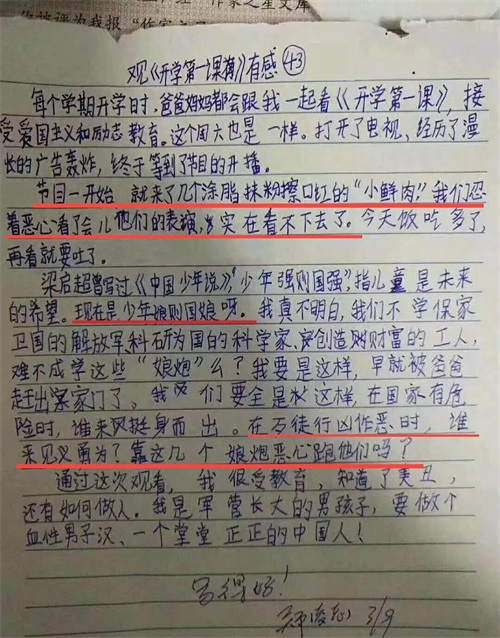 观《开学第一课》有感 43
每个学期开学日时,爸爸妈妈都会跟我一起看《开学第一课》,接
受爱国主义和励志教育。这个周六也是一样。打开了电视、经历了漫
长的广告轰炸,终于等到了节目的开播。
节目一开始 就来了几个涂脂抹粉擦口红的“小鲜肉”。我们忍
着恶心看了会儿他们的表演,实在看不下去了。今天饭吃多了,
再看就要吐了。
梁启超曾写过《中国少年说》,“少年强则国强”指儿童是未来
的希望。现在是少年娘则国娘呀。我真不明白,我们不学保家
卫国的解放军科研为国的科学家,创造财富的工人,
难不成学这些“娘炮”么?我要是这样,早就被爸爸
赶出家门了。我们要全是这样,在国家有危
险时,谁来挺身而出。在歹徒行凶作恶时,谁
来见义勇为?靠这几个娘炮恶心跑他们吗?
通过这次观看,我很受教育,知道了美丑,
还有如何做人。我是军营长大的男孩子,要做个
血性男子汉、一个堂堂正正的中国人!
写得好!
3/9